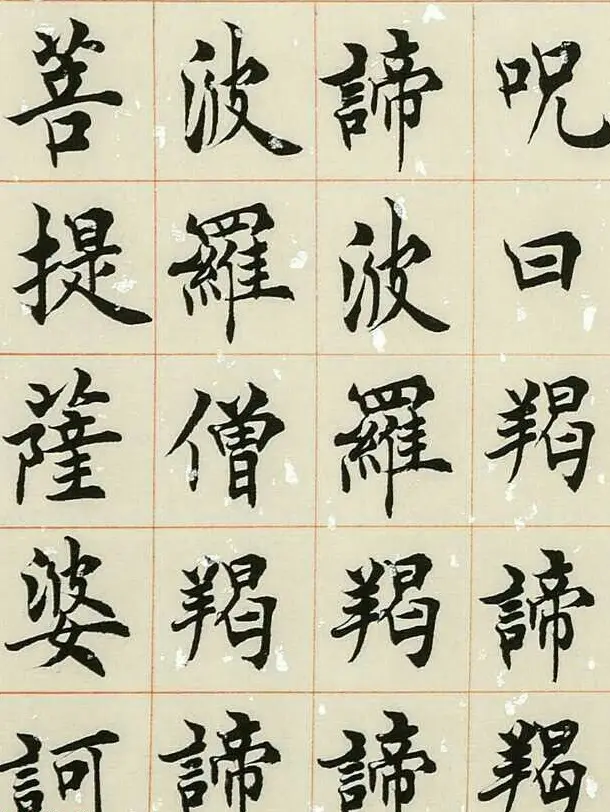 呪曰羯諦羯
諦波羅羯諦
波羅僧羯諦
菩提薩婆訶